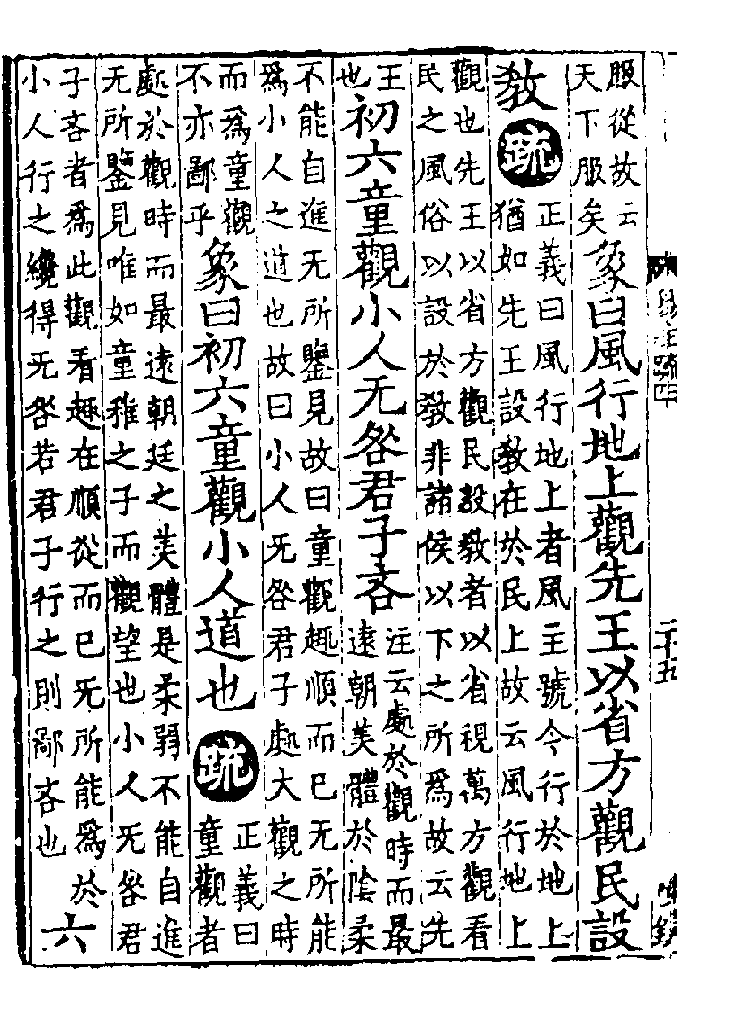 服從故云
天下服矣
象曰風行地上觀先王以省方觀民設
教
疏
正義曰風行地上者風主號令行於地上
猶如先王設教在於民上故云風行地上
觀也先王以省方觀民設教者以省視萬方觀看
民之風俗以設於教非諸侯以下之所爲故云先
王
也
初六童觀小人无咎君子吝
注云處於觀時而最
遠朝美體於陰柔
不能自進无所鑒見故曰童觀趣順而已无所能
爲小人之道也故曰小人无咎君子處大觀之時
而爲童觀
不亦鄙乎
象曰初六童觀小人道也
疏
正義曰
童觀者
處於觀時而最遠朝廷之美體是柔弱不能自進
无所鑒見唯如童稚之子而觀望也小人无咎君
子吝者爲此觀看趣在順從而已无所能爲於
小人行之纔得无咎若君子行之則鄙吝也
六
二十五